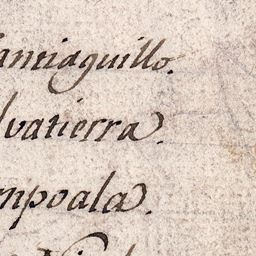 antiaguillo.
lvatierra.
mpoala.